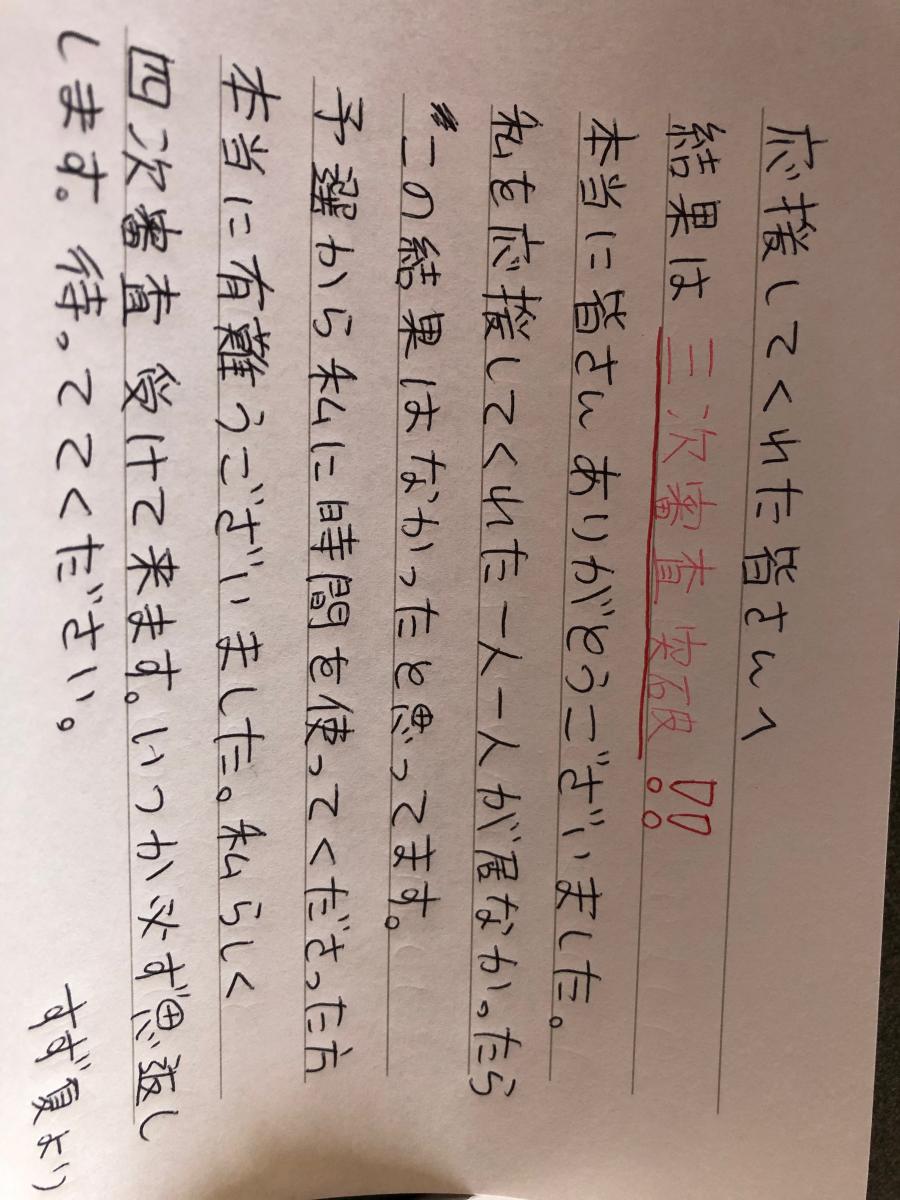 応援してくれた皆さんへ
結果は 三次審査 突破!!
本当に皆さんありがとうございました。
私を応援してくれた一人一人が居なかったら
この結果はなかったと思ってます。
予選から私に時間を使ってくださった方
本当に有難うございました。私らしく
四次審査 受けて来ます。いつか必ず恩返し
します。待っててください。
すず夏より